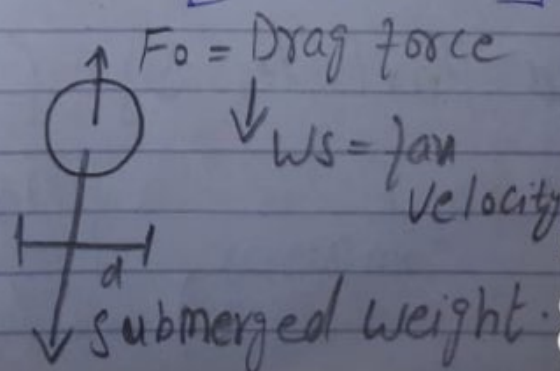 Fo = Drag force
Ws = fall
Velocity
d
Submerged Weight.